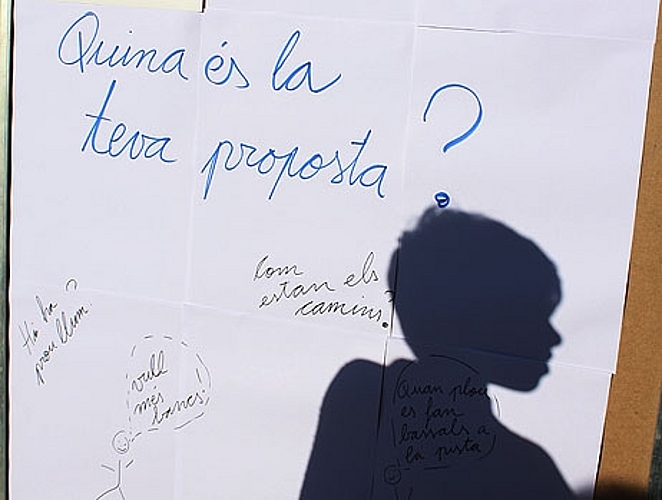 Quina és la
teva proposta?
Com
estan els
camins?
Hi ha
prou llum?
vull
més
bancs!
Quan plou
es fan
bassals a
la pista